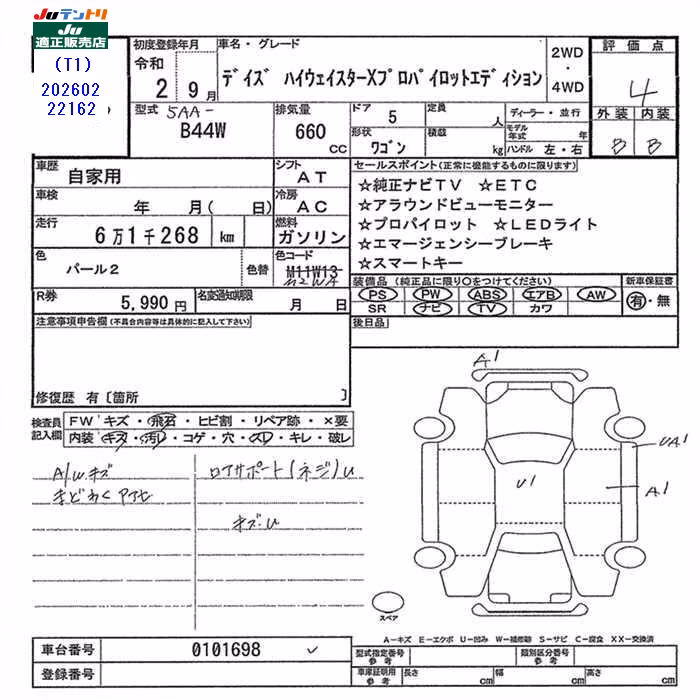 JUテントリ
JU
適正販売店
(T1)
202602
22162
初度登録年月
令和
2 9月
車名・グレード
デイズ ハイウェイスターXプロパイロットエディション
2WD
・
4WD
評価点
4
外装 内装
B B
型式
5AA-
B44W
排気量
660
CC
ドア
5
定員
人
形状
ワゴン
積載
kg
ディーラー・並行
モデル年式
年
ハンドル 左・右
車歴
自家用
シフト
AT
車検
年 月( 日)
冷房
AC
走行
6万1千268 km
燃料
ガソリン
色
パール2
色替
色コード
M11W13
R券
5,990円
名変通知期限
月 日
セールスポイント(正常に機能するものに限ります)
☆純正ナビTV ☆ETC
☆アラウンドビューモニター
☆プロパイロット ☆LEDライト
☆エマージェンシーブレーキ
☆スマートキー
装備品(純正品に限り○をつけてください)
PS PW ABS エアB AW
SR ナビ TV カワ
新車保証書
有・無
後日品
注意事項申告欄(不具合内容等は具体的に記入して下さい)
修復歴 有〔箇所 〕
検査員
記入欄
FW キズ・飛石・ヒビ割・リペア跡・×要
内装 キズ・汚レ・コゲ・穴・スレ・キレ・破レ
A/Wキズ
ロアサポート(ネジ)U
キズ・U
A1
UA1
U1
A1
スペア
A-キズ E-エクボ U-凹み W-補修跡 S-サビ C-腐食 XX-交換済
車台番号
0101698
登録番号
型式指定番号
参考
類別区分番号
参考
車庫証明用
参考
長さ
cm
幅
cm
高さ
cm